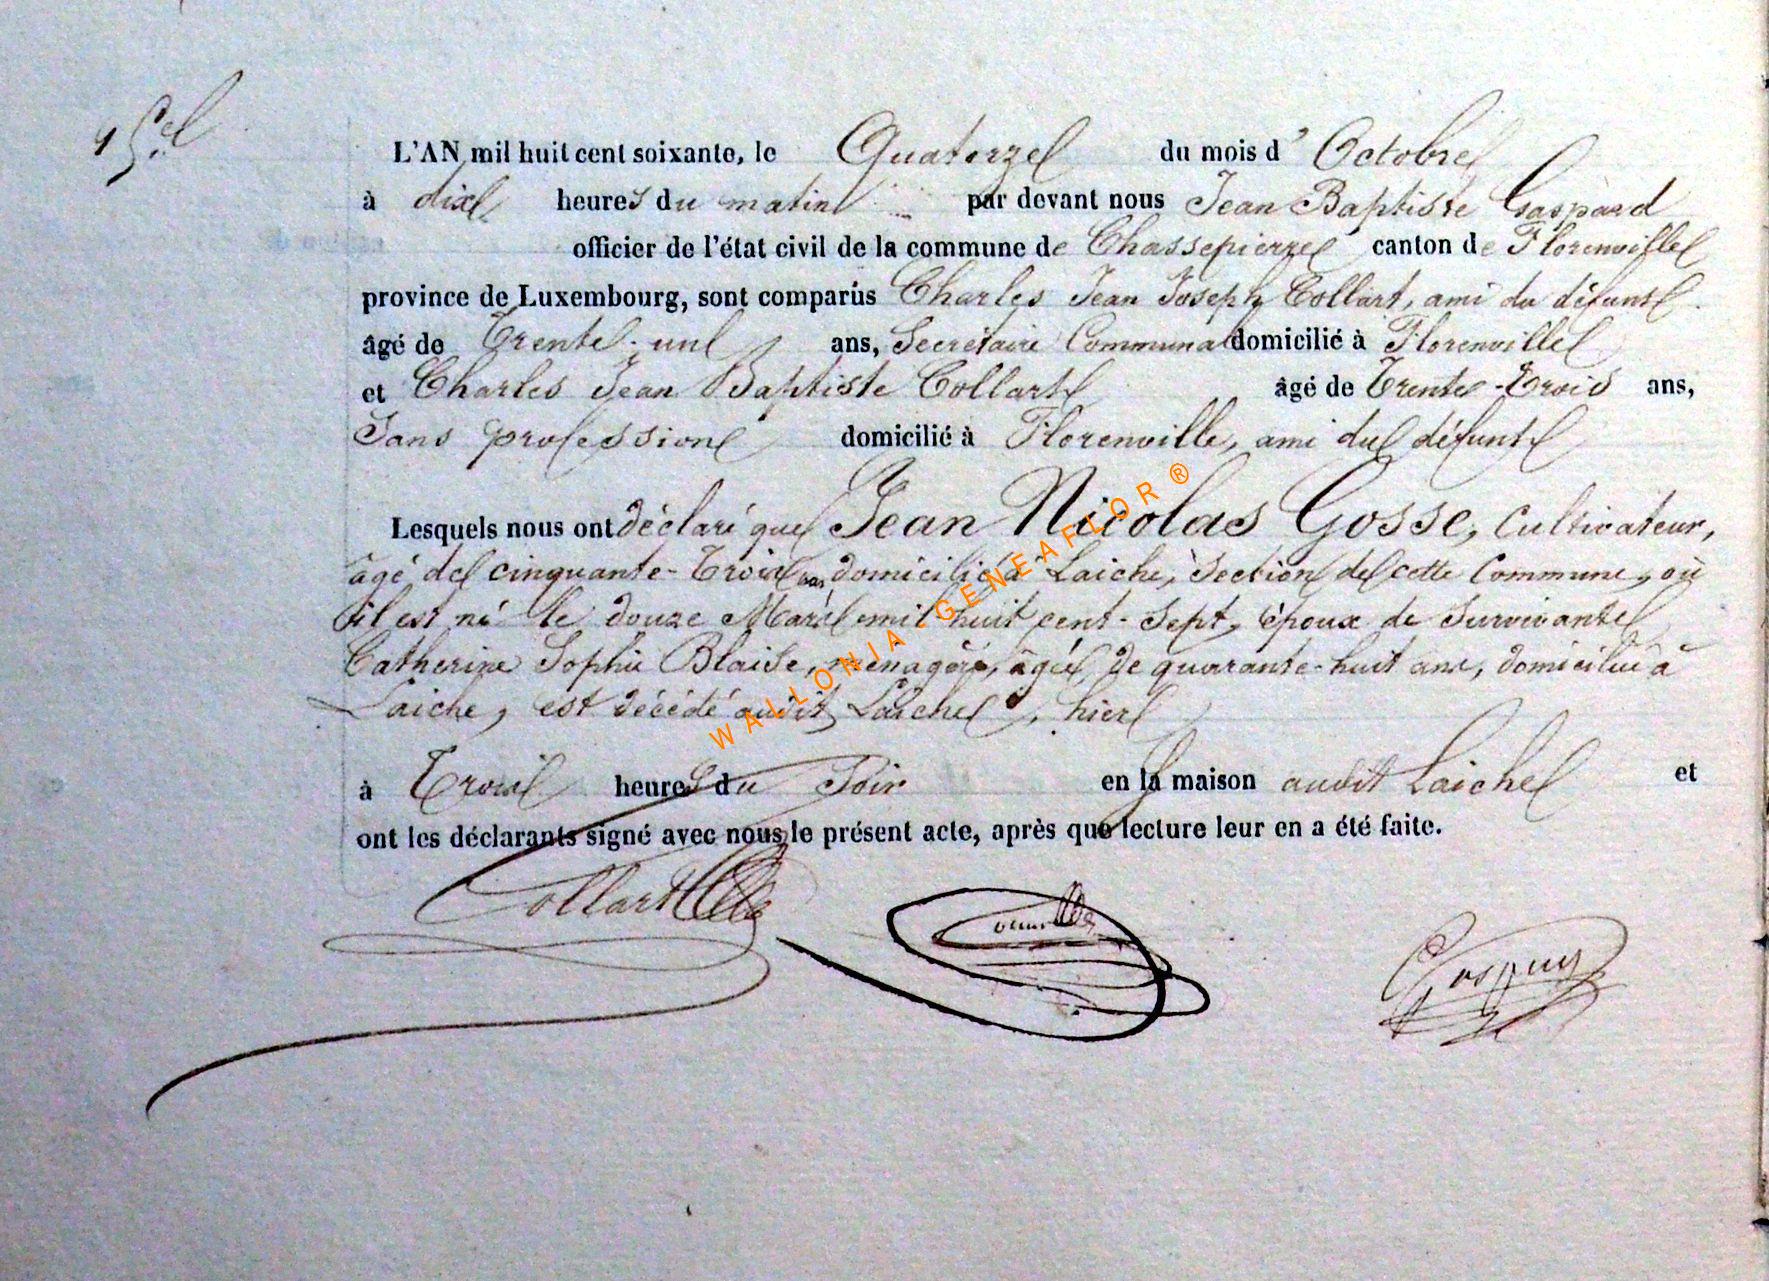 L'AN mil huit cent soixante, le Quatorze du mois d'Octobre
à dix heures du matin par devant nous Jean Baptiste Gaspard
officier de l'état civil de la commune de Chassepierre canton de Florenville
province de Luxembourg, sont comparus Charles Jean Joseph Collart, ami du défunt
âgé de Trente-un ans, Secrétaire Communal domicilié à Florenville
et Charles Jean Baptiste Collart âgé de Trente-Trois ans,
Sans profession domicilié à Florenville, ami du défunt
Lesquels nous ont déclaré que Jean Nicolas Gosse, Cultivateur,
âgé de cinquante-Trois ans domicilié à Laiche, Section de cette Commune, où
il est né le douze Mars mil huit cent-Sept, époux de Survivante
Catherine Sophie Blaise, ménagère, âgée de quarante-huit ans, domiciliée à
Laiche, est décédé audit Laiche, hier
à Trois heures du Soir en la maison audit Laiche et
ont les déclarants signé avec nous le présent acte, après que lecture leur en a été faite.
Collart
WALLONIA - GENEAFLOR ®